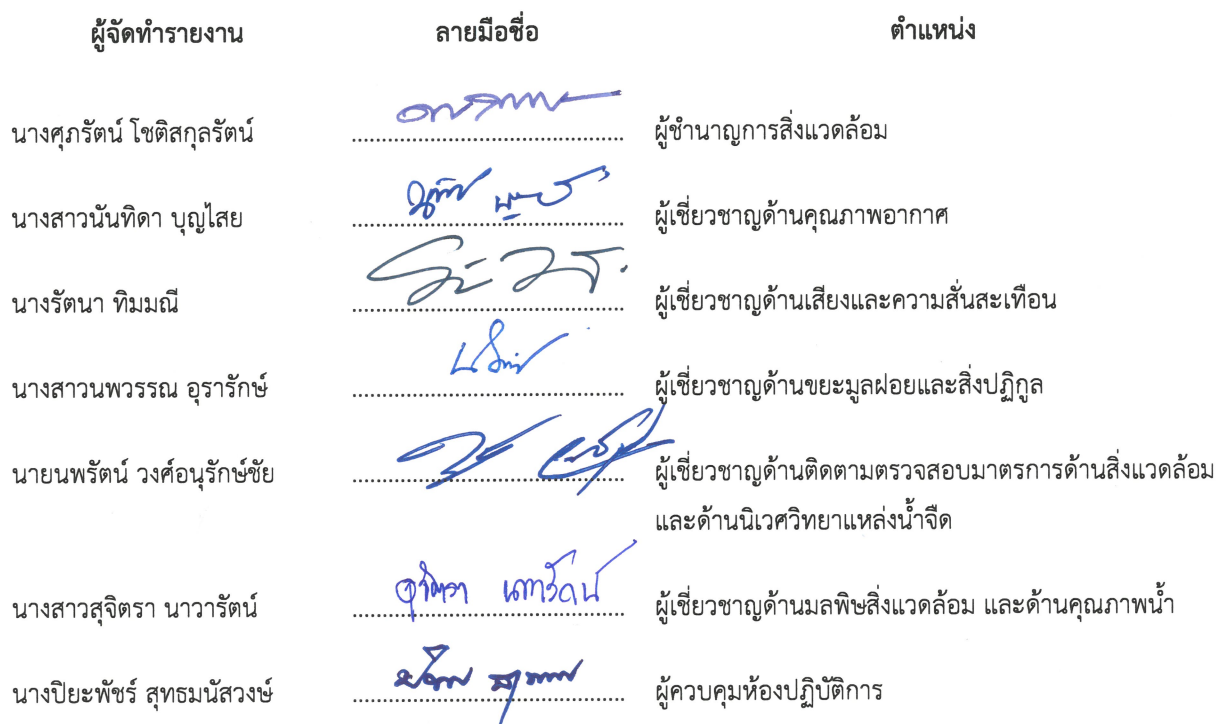 ผู้จัดทำรายงาน ลายมือชื่อ ตำแหน่ง
นางศุภรัตน์ โชติสกุลรัตน์ ผู้ชำนาญการสิ่งแวดล้อม
นางสาวนันทิดา บุญไสย ผู้เชี่ยวชาญด้านคุณภาพอากาศ
นางรัตนา ทิมมณี ผู้เชี่ยวชาญด้านเสียงและความสั่นสะเทือน
นางสาวนพวรรณ อุรารักษ์ ผู้เชี่ยวชาญด้านขยะมูลฝอยและสิ่งปฏิกูล
นายนพรัตน์ วงศ์อนุรักษ์ชัย ผู้เชี่ยวชาญด้านติดตามตรวจสอบมาตรการด้านสิ่งแวดล้อม
และด้านนิเวศวิทยาแหล่งน้ำจืด
นางสาวสุจิตรา นาวารัตน์ ผู้เชี่ยวชาญด้านมลพิษสิ่งแวดล้อม และด้านคุณภาพน้ำ
นางปิยะพัชร์ สุทธมนัสวงษ์ ผู้ควบคุมห้องปฏิบัติการ